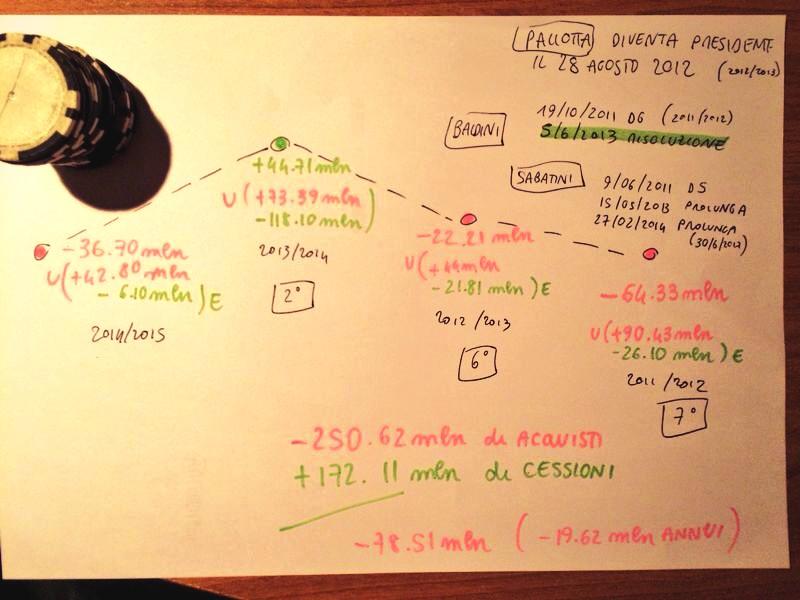 PALLOTTA DIVENTA PRESIDENTE
IL 28 AGOSTO 2012 (2012/2013)
BALDINI
19/10/2011 DG (2011/2012)
5/6/2013 RISOLUZIONE
SABATINI
9/06/2011 DS
15/03/2013 PROLUNGA
27/02/2014 PROLUNGA
-36.70 mln
U(+42.80 mln
-6.10 mln)E
2014/2015
+44.71 mln
U(+73.39 mln
-118.10 mln)
2013/2014
2°
-22.21 mln
U(+44 mln
-21.81 mln)E
2012/2013
6°
-64.33 mln
U(+90.43 mln
-26.10 mln)E
2011/2012
7°
-250.62 mln di ACQUISTI
+172.11 mln di CESSIONI
-78.51 mln (-19.62 mln ANNUI)